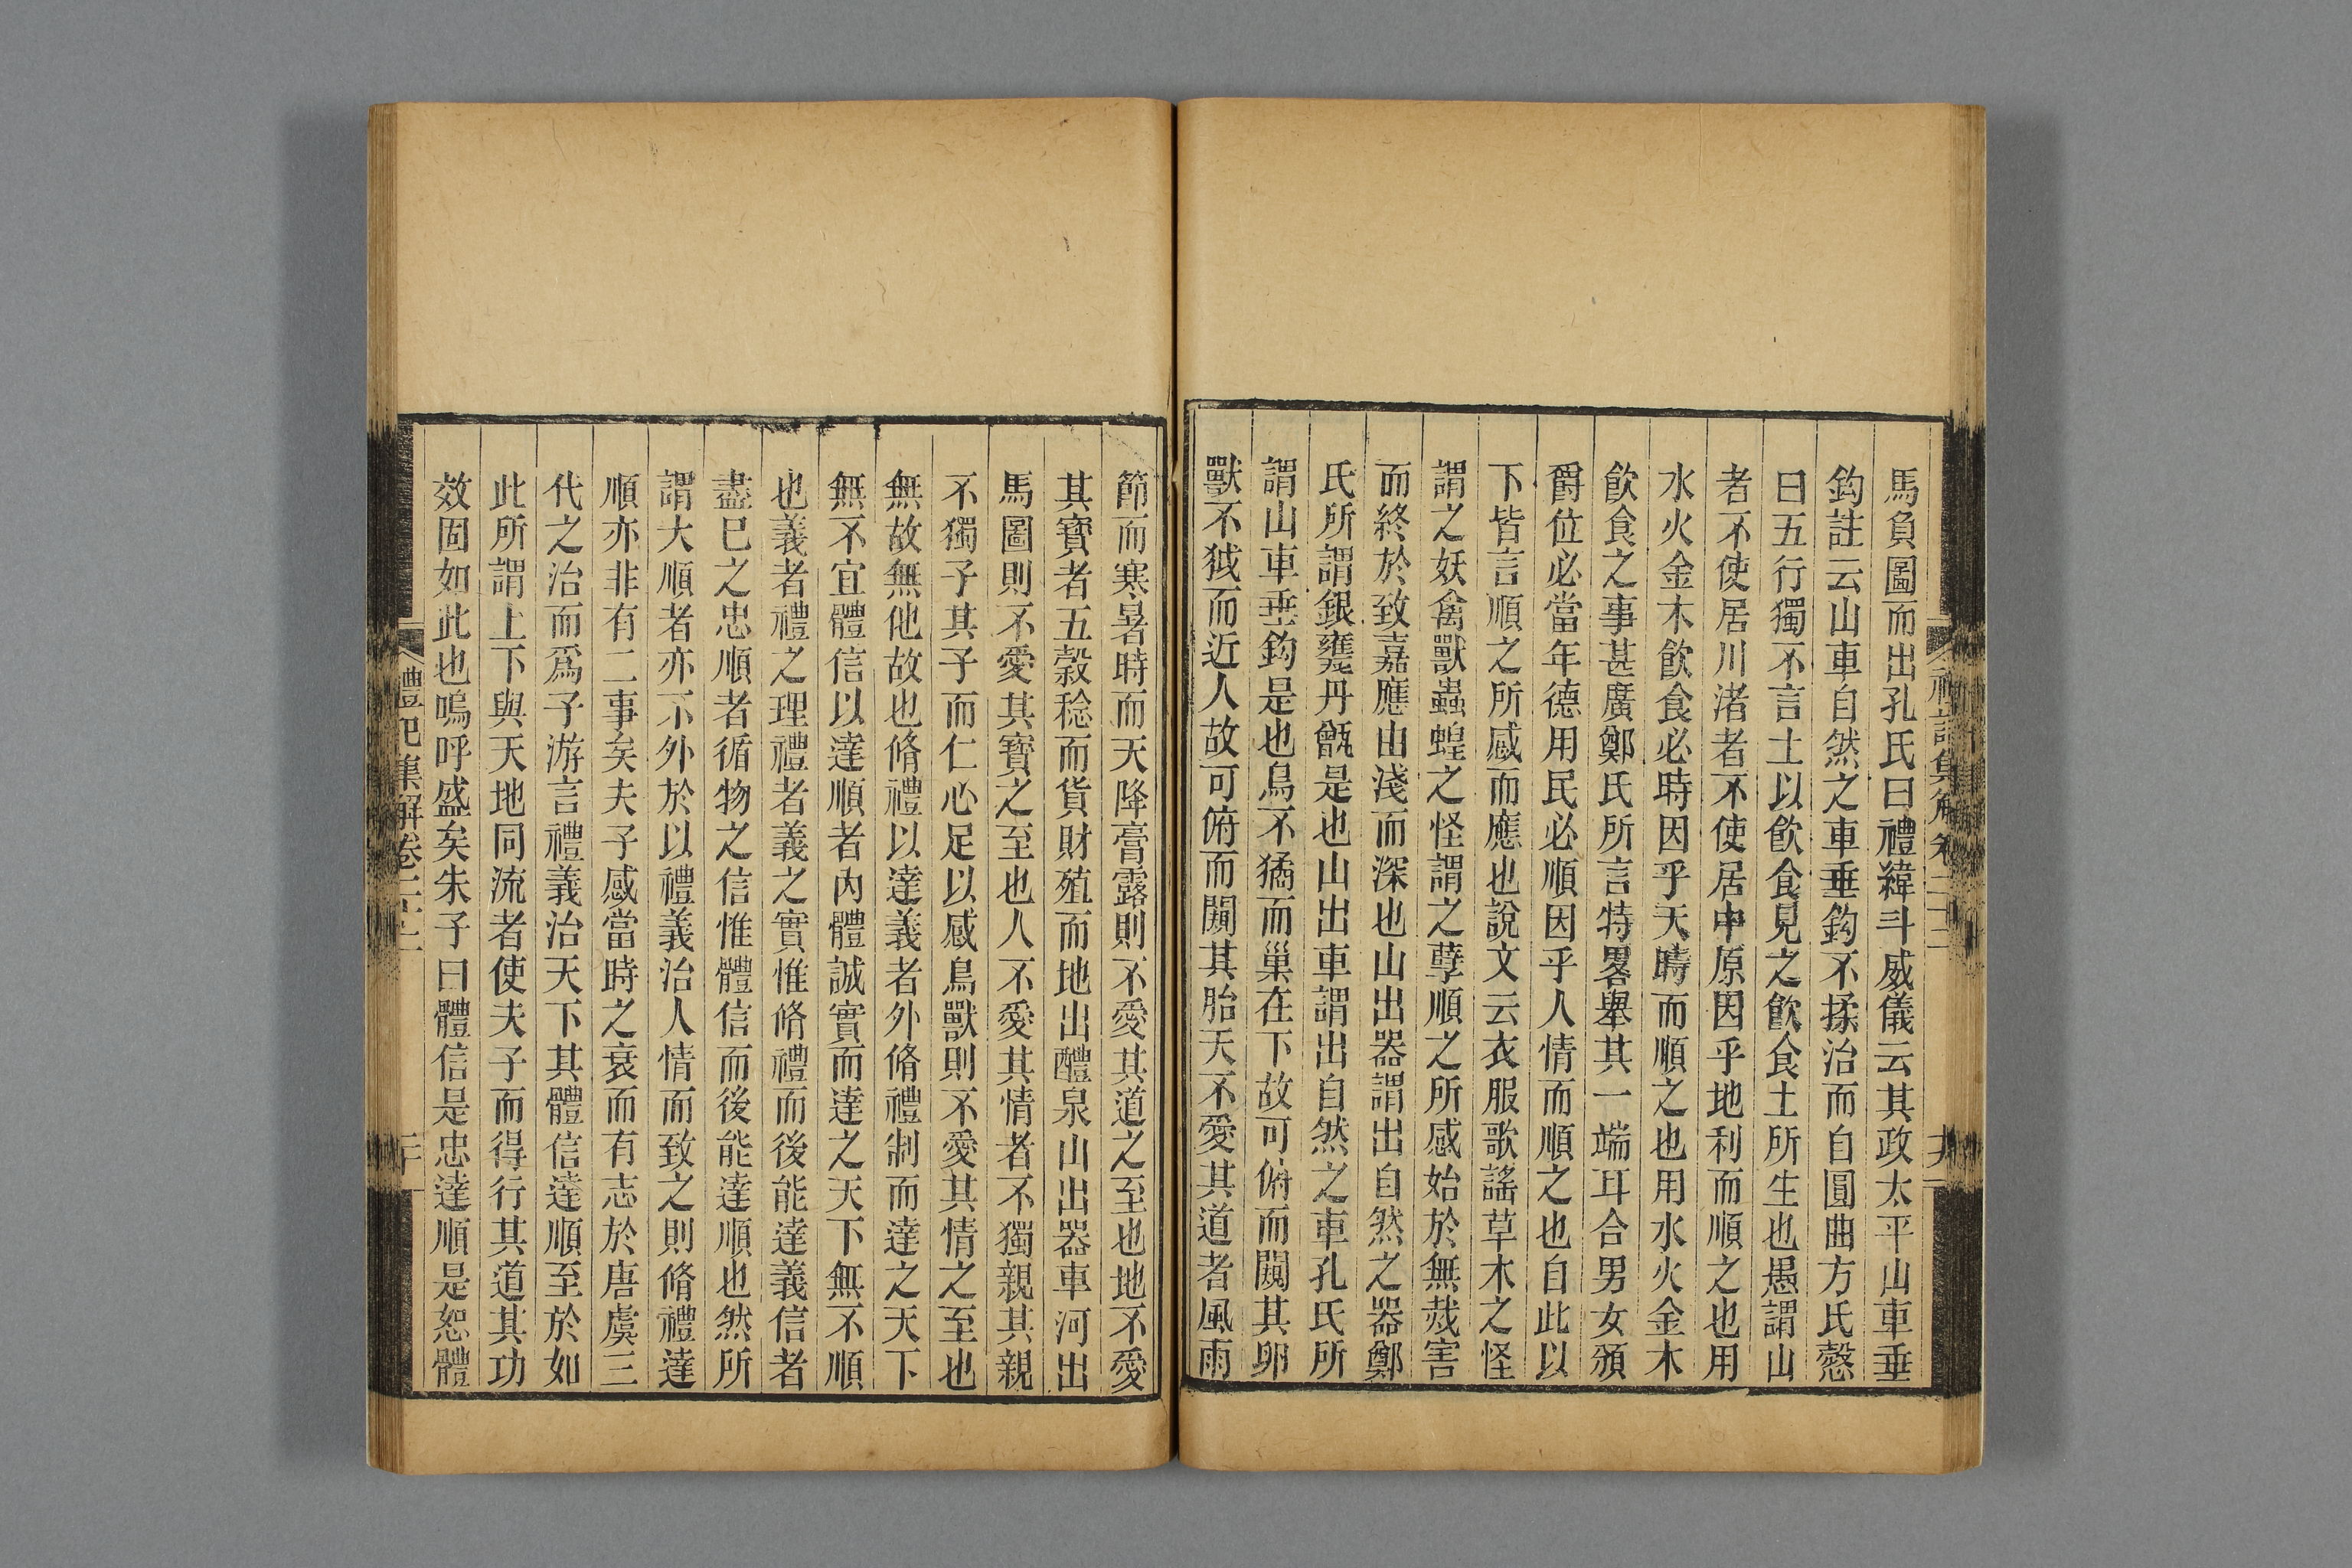 馬負圖而出孔氏曰禮緯斗威儀云其政太平山車垂
鈎註云山車自然之車垂鈎不揉治而自圓曲方氏慤
曰五行獨不言土以飲食見之飲食土所生也愚謂山
者不使居川渚者不使居中原因乎地利而順之也用
水火金木飲食必時因乎天時而順之也用水火金木
飲食之事甚廣鄭氏所言特畧舉其一端耳合男女頒
爵位必當年德用民必順因乎人情而順之也自此以
下皆言順之所感而應也說文云衣服歌謠草木之怪
謂之妖禽獸蟲蝗之怪謂之孽順之所感始於無烖害
而終於致嘉應由淺而深也山出器謂出自然之器鄭
氏所謂銀甕丹甑是也山出車謂出自然之車孔氏所
謂山車垂鈎是也鳥不獝而巢在下故可俯而闚其卵
獸不狘而近人故可俯而闚其胎天不愛其道者風雨
節而寒暑時而天降膏露則不愛其道之至也地不愛
其寶者五穀稔而貨財殖而地出醴泉山出器車河出
馬圖則不愛其寶之至也人不愛其情者不獨親其親
不獨子其子而仁心足以感鳥獸則不愛其情之至也
無故無他故也脩禮以達義者外脩禮制而達之天下
無不宜體信以達順者內體誠實而達之天下無不順
也義者禮之理禮者義之實惟脩禮而後能達義信者
盡巳之忠順者循物之信惟體信而後能達順也然所
謂大順者亦不外於以禮義治人情而致之則脩禮達
順亦非有二事矣夫子感當時之衰而有志於唐虞三
代之治而爲子游言禮義治天下其體信達順至於如
此所謂上下與天地同流者使夫子而得行其道其功
效固如此也嗚呼盛矣朱子曰體信是忠達順是恕體
禮記集解卷二十二
二十